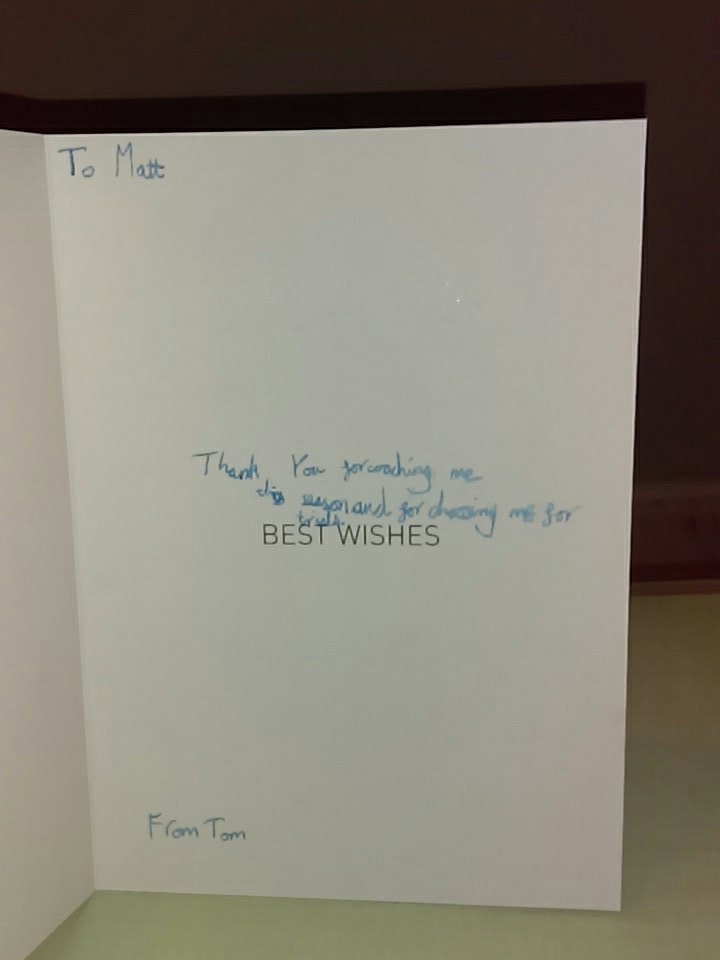 To Matt
Thank You for coaching me
this season and for choosing me for
trials
BEST WISHES
From Tom